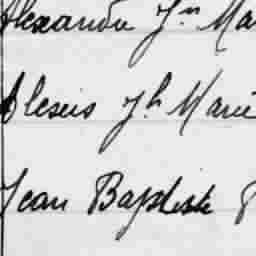 Alexandre Jn Ma
Alexis Jh Marie
Jean Baptiste